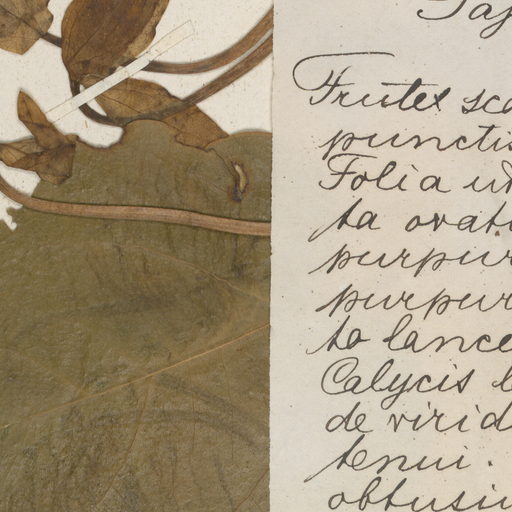 Frutex sc
punctis
Folia u
ta ovat
purpur
purpur
to lance
Calycis l
de virid
tenui.
obtusiu